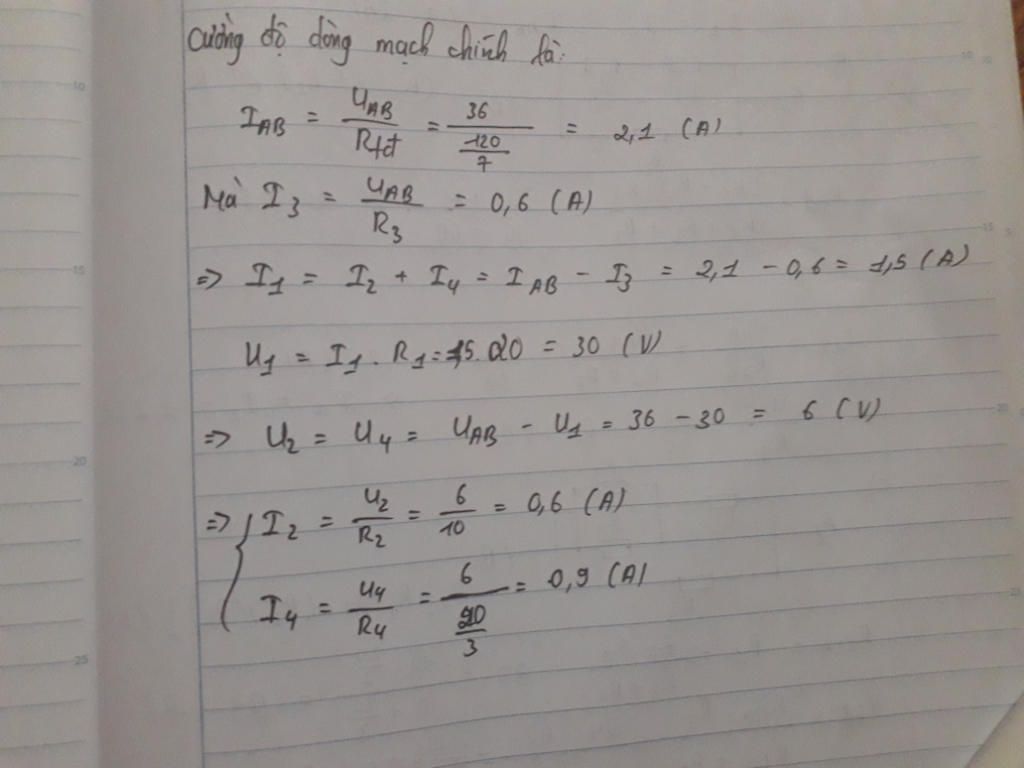 Cường độ dòng mạch chính là:
I_AB = U_AB / R_tđ = 36 / (120/7) = 2,1 (A)
Mà I_3 = U_AB / R_3 = 0,6 (A)
=> I_1 = I_2 + I_4 = I_AB - I_3 = 2,1 - 0,6 = 1,5 (A)
U_1 = I_1 . R_1 = 1,5. 20 = 30 (V)
=> U_2 = U_4 = U_AB - U_1 = 36 - 30 = 6 (V)
=> { I_2 = U_2 / R_2 = 6 / 10 = 0,6 (A)
I_4 = U_4 / R_4 = 6 / (20/3) = 0,9 (A)